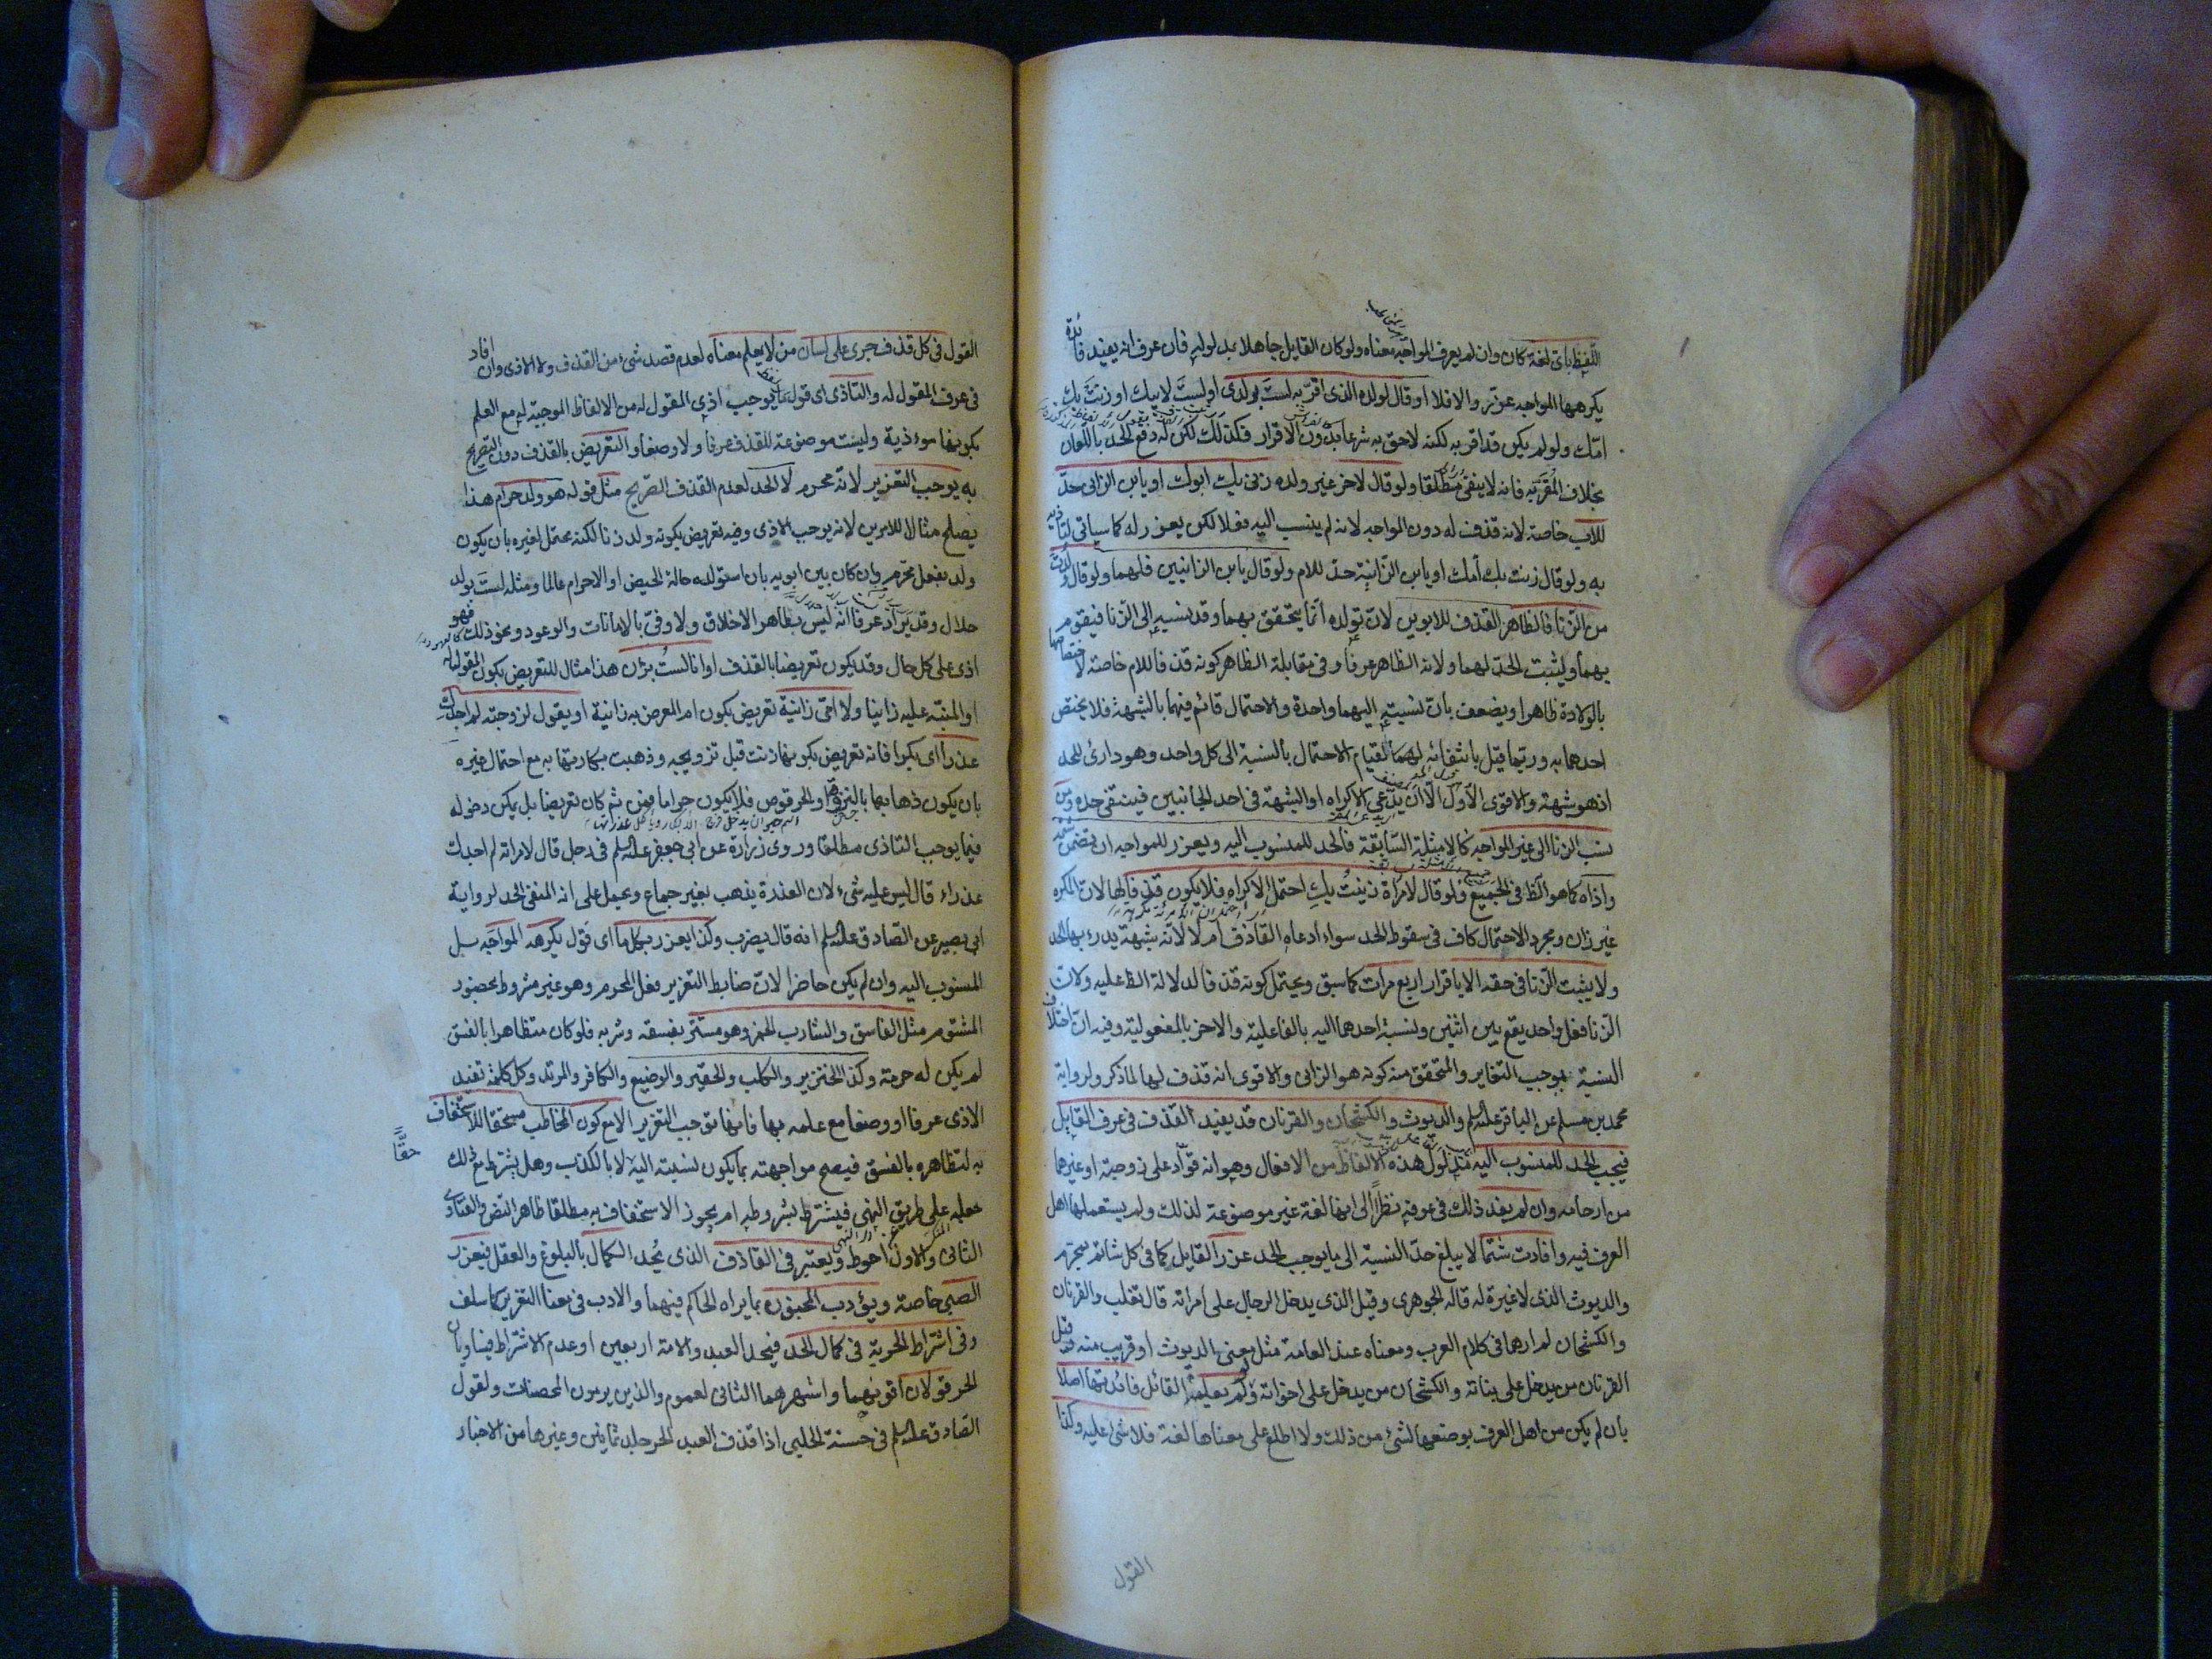 اللفظ بأي لغة كان وان لم يعرف المواجه معناه ولو كان القايل جاهلا بمدلوله فان عرف انه يفيد فائدة
يكرهها المواجه عزّر والا فلا او قال لولده الذى اقرّ به لستَ بولدى او لستَ لابيك او زنت بك
امّك ولو لم يكن قد اقر به لكنه لاحق به شرعا بدون الاقرار فكذلك لكن له دفع الحدّ باللعان
بخلاف المُقَرّ به فانه لا ينتفى مطلقا ولو قال لاخر غير ولده زنى بك ابوك او يابن الزانى حدّ
للاب خاصة لانه قذف له دون المواجه لانه لم ينسب اليه فعلا لكن يعزر له كما سياتى لتأذيه
به ولو قال زنت بك أمك او يابن الزّانية حدّ للام ولو قال يابن الزانيين فلهما ولو قال ولدت
من الزّنا فالظاهر القذف للابوين لانّ تولده انما يتحقق بهما وقد نسبه الى الزنا فيقوم
بهما ويثبت الحدّ لهما ولانه الظاهر عرفا وفى مقابلة الظاهر كونه قذفا للام خاصة لاختصاصها
بالولادة ظاهرا ويضعف بانّ نسبته اليهما واحدة والاحتمال قائم فيهما بالشبهة فلا يختص
احدهما به وربّما قيل بانتفائه لهما لقيام الاحتمال بالنسبة الى كل واحد وهو دارئ للحد
اذ هو شبهة والاقوى الاول الّا ان يدّعى الاكراه او الشبهة فى احد الجانبين فينتفى حده ومن
نسب الزنا الى غير المواجه كالامثلة السّابقة فالحد للمنسوب اليه ويعزر للمواجه ان تضمن شتمه
واذاه كما هو الظ فى الجميع ولو قال لامرأة زنيتُ بكِ احتمل الاكراه فلا يكون قذفا لها لانّ المكره
غير زان ومجرد الاحتمال كاف فى سقوط الحد سواء ادعاه القاذف ام لا لانّه شبهة يدرء بها الحد
ولا يثبت الزّنا فى حقه الا باقرار اربع مرات كما سبق ويحتمل كونه قذفا لدلالة الظ عليه ولانّ
الزنا فعل واحد يقع بين اثنين ونسبة احدهما اليه بالفاعلية والاخر بالمفعولية وفيه انّ اختلاف
النسبة يوجب التغاير والمتحقق منه كونه هو الزانى والاقوى انه قذف لها لما ذكر ولرواية
محمد بن مسلم عن الباقر علیه السلم والديوث والكشخان والقرنان قد يفيد القذف فى عرف القايل
فيجب الحد للمنسوب اليه مدلول هذه الالفاظ من الافعال وهو انه قوّاد على زوجته او غيرها
من ارحامه وان لم يفد ذلك فى عرفه نظرًا الى انها لغة غير موضوعة لذلك ولم يستعملها اهل
العرف فيه وافادت شتما لا يبلغ حدّ النسبة الى ما يوجب الحد عزر القايل كما فى كل شاتم بمحرم
والديوث الذى لا غيرة له قاله الجوهرى وقيل الذى يدخل الرجال على امراته قال تغلب والقرنان
والكشخان لم ارهما فى كلام العرب ومعناه عند العامة مثل معنى الديوث او قريب منه وقيل
القرنان من يدخل على بناته والكشخان من يدخل على اخواته ولو لم يعلم القائل فائدتها اصلا
بان لم يكن من اهل العرف بوضعها لشئ من ذلك ولا اطلع على معناها لغة فلا شئ عليه وكذا
القول
القول فى كل قذف جرى على لسان من لا يعلم معناه لعدم قصد شئ من القذف ولا الاذى وان افاد
فى عرف المقول له والتاذى اى قول ما يوجب اذى المقول له من الالفاظ الموجبة له مع العلم
بكونها موءذية وليست موضوعة للقذف عرفا ولا وضعا والتعريض بالقذف دون التصريح
به يوجب التعزير لانه محرم لا الحد لعدم القذف الصّريح مثل قوله هو ولد حرام هذا
يصلح مثالا للامرين لانه يوجب الاذى وفيه تعريض بكونه ولد زنا لكنه محتمل لغيره بان يكون
ولد بفعل محرم وان كان بين ابويه بان استولده حالة الحيض او الاحرام عالما ومثله لستَ بولد
حلال وقد يراد عرفا انّه ليس بطاهر الاخلاق ولا وفىّ بالامانات والوعود ونحو ذلك فهو
اذى على كل حال وقد يكون تعريضا بالقذف او انا لستُ بزان هذا مثال للتعريض بكون المقول له
او المنبّه عليه زانيا ولا امّى زانية تعريض بكون ام المعرض به زانية او يقول لزوجته لم اجدك
عذراء اى بكرا فانه تعريض بكونها زنت قبل تزويجه وذهبت بكارتها به مع احتمال غيره
بان يكون ذهابها بالنزوة او الحرقوص فلا يكون حراما فمن ثم كان تعريضا بل يمكن دخوله
فيما يوجب التاذى مطلقا وروى زرارة عن ابى جعفر علیه السلم فى رجل قال لامراته لم اجدك
عذراء قال ليس عليه شئ لان العذرة يذهب بغير جماع ويحمل على ان المنفى الحد لرواية
ابى بصير عن الصّادق علیه السلم انه قال يضرب وكذا يعزر بكل ما اى قول يكرهه المواجَه بل
المنسوب اليه وان لم يكن حاضرا لانّ ضابط التعزير فعل المحرم وهو غير مشروط بحضور
المشتوم مثل الفاسق والشارب الخمر وهو مستتر بفسقه وشربه فلو كان متظاهرا بالفسق
لم يكن له حرمة وكذا الخنزير والكلب والحقير والوضيع والكافر والمرتد وكل كلمة تفيد
الاذى عرفا او وضعا مع علمه بها فانها توجب التعزير الا مع كون المخاطب مستحقا للاستخفاف
به لتظاهره بالفسق فيصح مواجهته بما يكون نسبته اليه لا بالكذب وهل يشترط مع ذلك
جعله على طريق النهى فيشترط بشروطه ام يجوز الاستخفاف به مطلقا ظاهر النص والفتاوى
الثانى والاول احوط ويعتبر فى القاذف الذى يُحد الكمال بالبلوغ والعقل فيعزر
الصبى خاصة ويؤدب المجنون بما يراه الحاكم فيهما والادب فى معنا التعزير كما سلف
وفى اشتراط الحرية فى كمال الحد فيحد العبد والامة اربعين او عدم الاشتراط فيساويان
الحر قولان اقويهما واشهرهما الثانى لعموم والذين يرمون المحصنات ولقول
الصّادق علیه السلم فى حسنة الحلبى اذا قذف العبد الحر جلد ثمانين وغيرها من الاخبار